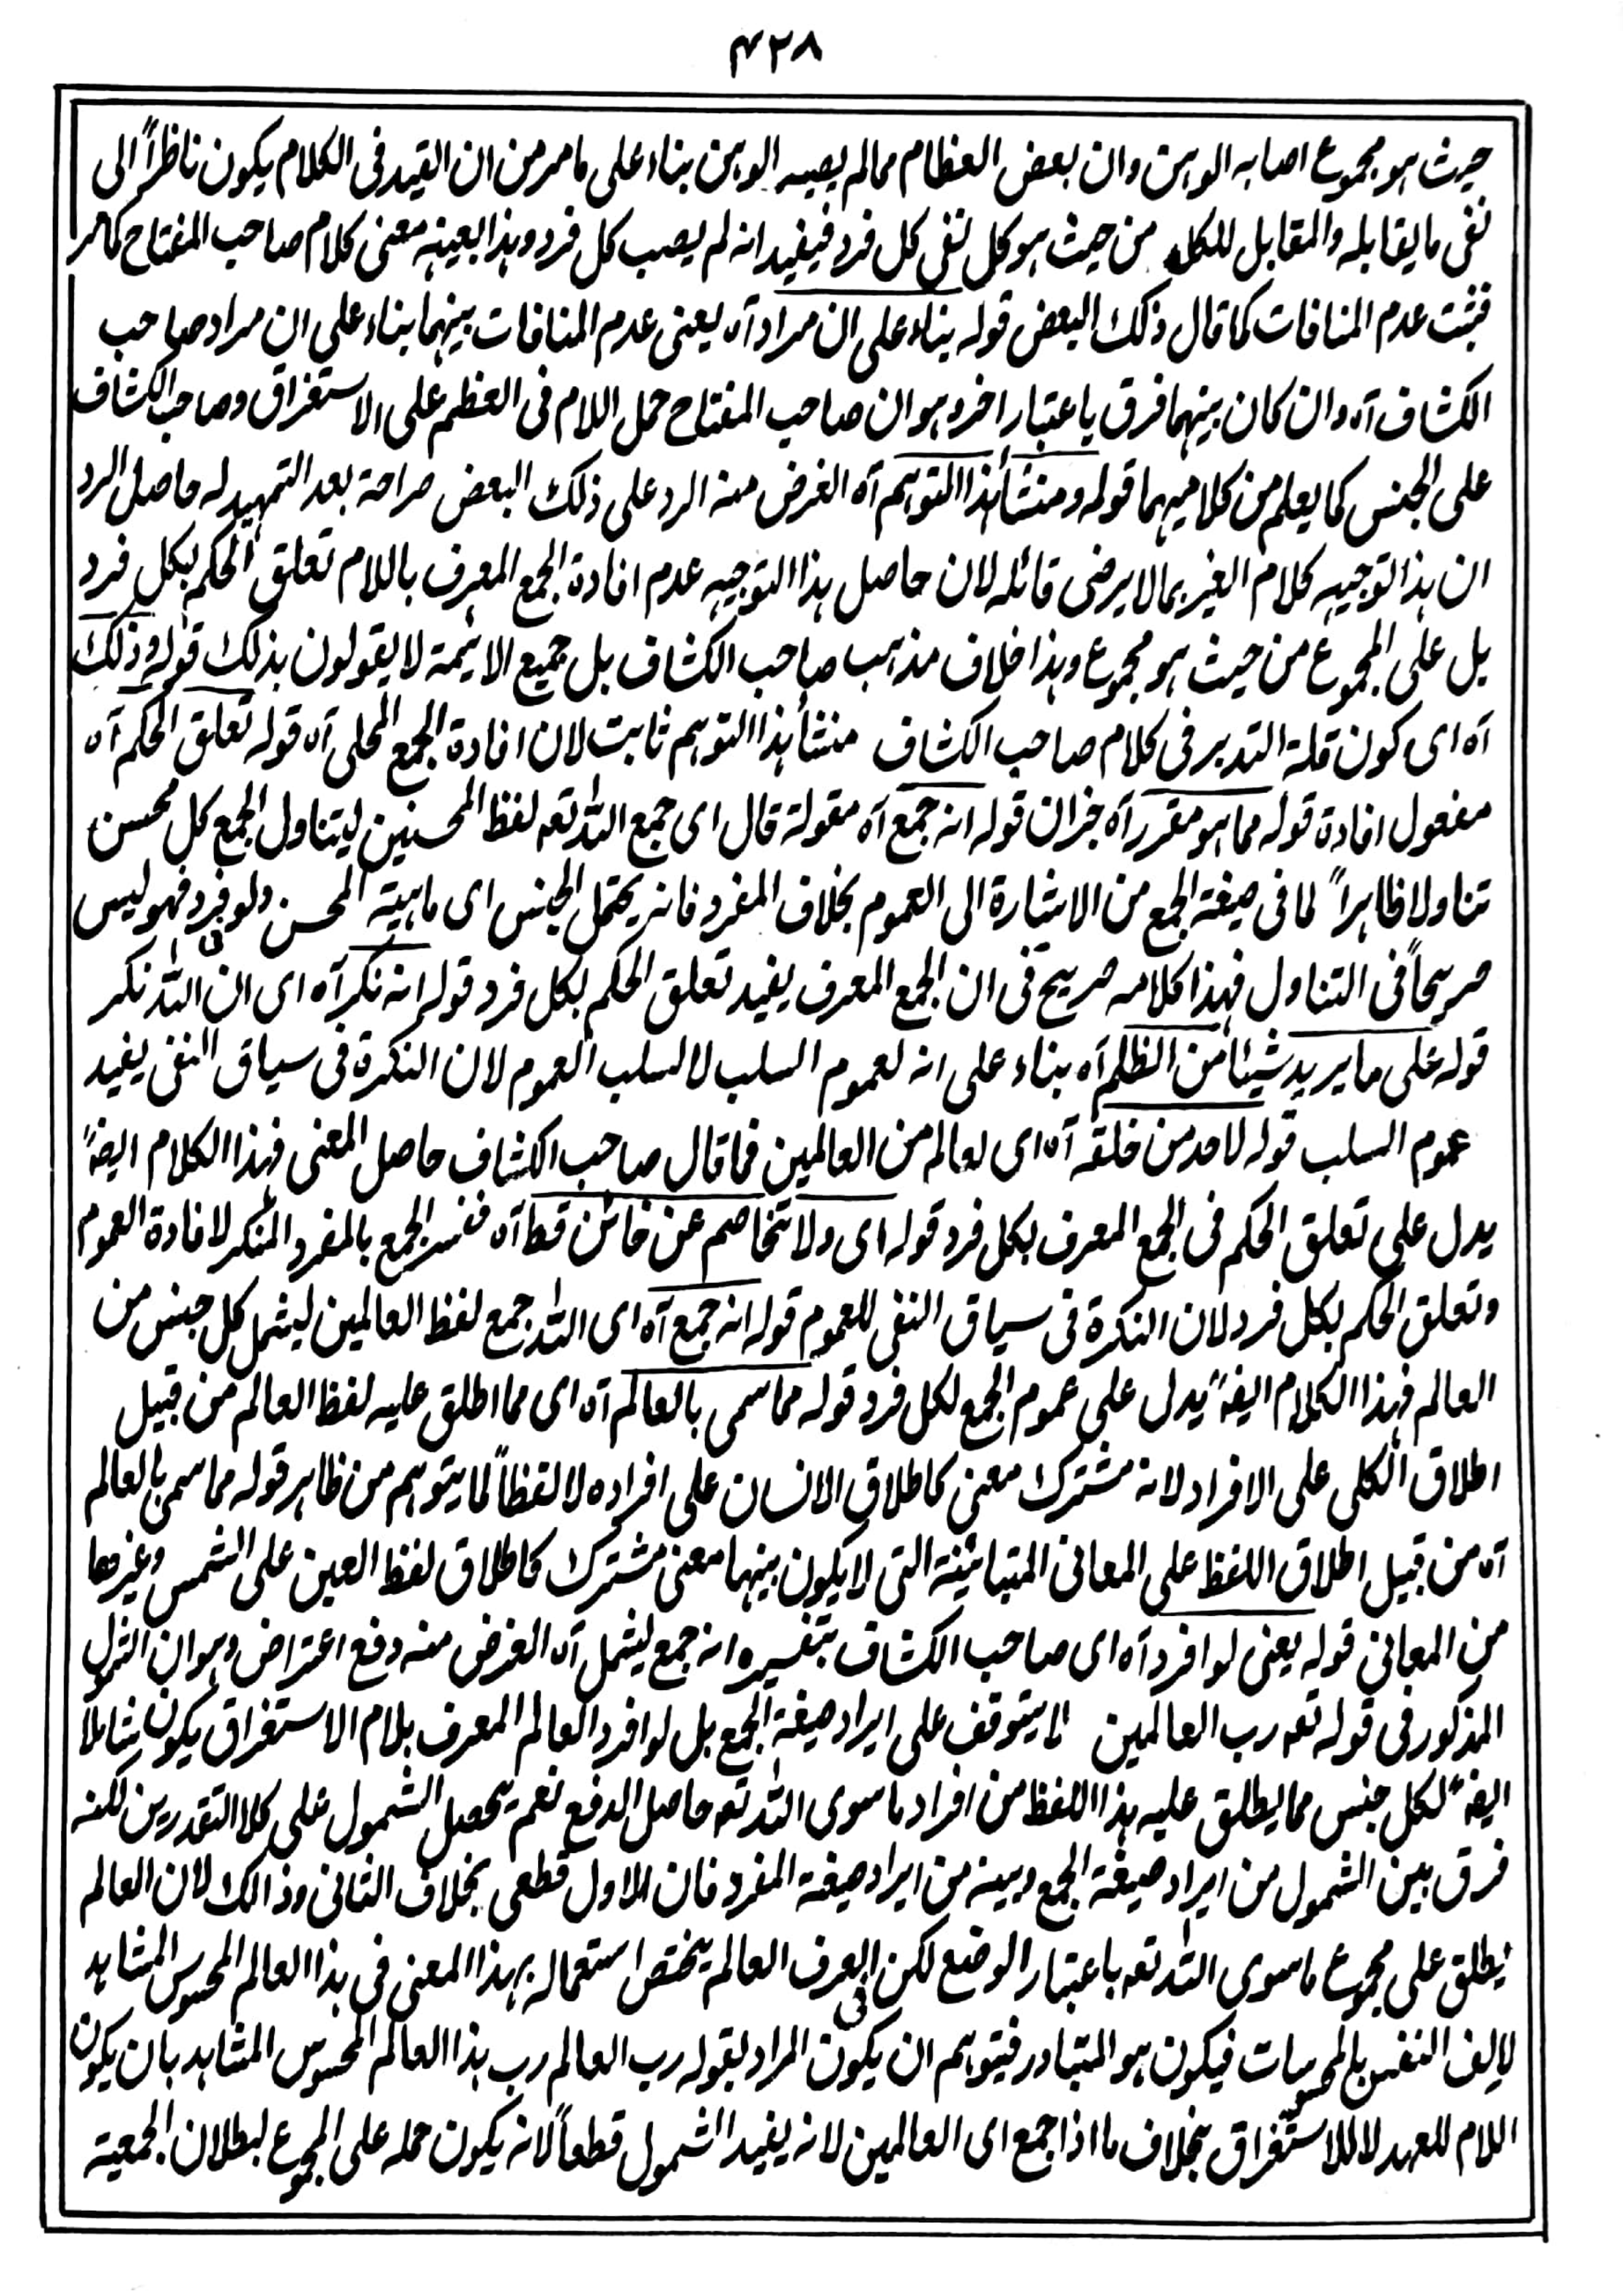 ۴۲۸
حيث هو مجموع اصابه الوهن وان بعض العظام ممالم يصبه الوهن بناء على مامر من ان القيد فى الكلام يكون ناظراً الى
نفى ما يقابله والمقابل للكل من حيث هو كل نفى كل فرد فيفيد انه لم يصب كل فرد وهذا بعينه معنى كلام صاحب المفتاح كمامر
فثبت عدم المنافات كما قال ذلك البعض قوله بناء على ان مراد آه يعنى عدم المنافات بينهما بناء على ان مراد صاحب
الكشاف آه وان كان بينهما فرق باعتبار اخر وهو ان صاحب المفتاح حمل اللام فى العظم على الاستغراق وصاحب الكشاف
على الجنس كما يعلم من كلاميهما قوله ومنشأ هذا التوهم آه الغرض منه الرد على ذلك البعض صراحة بعد التمهيد له حاصل الرد
ان هذا توجيه كلام الغير بمالا يرضى قائله لان حاصل هذا التوجيه عدم افادة الجمع المعرف باللام تعلق الحكم بكل فرد
بل على المجموع من حيث هو مجموع وهذا خلاف مذهب صاحب الكشاف بل جميع الائيمة لا يقولون بذلك قوله وذلك
آه اى كون قلة التدبر فى كلام صاحب الكشاف منشأ هذا التوهم ثابت لان افادة الجمع المحلى آه قوله تعلق الحكم آه
مفعول افادة قوله مما هو مقرر آه خبران قوله انه جمع آه مقولة قال اى جمع الله تعه لفظ المحسنين ليتناول الجمع كل محسن
تناولا ظاهراً لما فى صيغة الجمع من الاشارة الى العموم بخلاف المفرد فانه يحتمل الجنس اى ماهية المحسن ولو فى فرد فهو ليس
صريحاً فى التناول فهذا كلامه صريح فى ان الجمع المعرف يفيد تعلق الحكم بكل فرد قوله انه نكر آه اى ان الله نكر
قوله على ما يريد شيئا من الظلم آه بناء على انه لعموم السلب لا لسلب العموم لان النكرة فى سياق النفى يفيد
عموم السلب قوله لاحد من خلقه آه اى لعالم من العالمين فما قال صاحب الكشاف حاصل المعنى فهذا الكلام ايضہً
يدل على تعلق الحكم فى الجمع المعرف بكل فرد قوله اى ولا تخاصم عن خائن قط آه ففسر الجمع بالمفرد المنكر لافادة العموم
وتعلق الحكم بكل فرد لان النكرة فى سياق النفى للعموم قوله انه جمع آه اى الله جمع لفظ العالمين ليشمل كل جنس من
العالم فهذا الكلام ايضہً يدل على عموم الجمع لكل فرد قوله مما سمى بالعالم آه اى مما اطلق عليه لفظ العالم من قبيل
اطلاق الكلى على الافراد لانه مشترك معنى كاطلاق الانسان على افراده لا لفظاً لما يتوهم من ظاهر قوله مما سمى بالعالم
آه من قبيل اطلاق اللفظ على المعانى المتبائنة التى لا يكون بينها معنى مشترك كاطلاق لفظ العين على الشمس وغيرها
من المعانى قوله يعنى لو افرد آه اى صاحب الكشاف بتفسيره انه جمع ليشمل آه الغرض منه دفع اعتراض وهو ان الشمول
المذكور فى قوله تعه رب العالمين لا يتوقف على ايراد صيغة الجمع بل لو افرد العالم المعرف بلام الاستغراق يكون شاملا
ايضہً لكل جنس مما يطلق عليه هذا اللفظ من افراد ما سوى الله تعه حاصل الدفع نعم يحصل الشمول على كلا التقدرين لكنه
فرق بين الشمول من ايراد صيغة الجمع وبينه من ايراد صيغة المفرد فان الاول قطعى بخلاف الثانى وذالك لان العالم
يطلق على مجموع ما سوى الله تعه باعتبار الوضع لكن فى العرف العالم يختص استعماله بهذا المعنى فى هذا العالم المحسوس المشاهد
لالف النفس بالمحسوسات فيكون هو المتبادر فيتوهم ان يكون المراد بقوله رب العالم رب هذا العالم المحسوس المشاهد بان يكون
اللام للعهد لا للاستغراق بخلاف ما اذا جمع اى العالمين لانه يفيد الشمول قطعاً لانه يكون حمله على المجموع لبطلان الجمعية